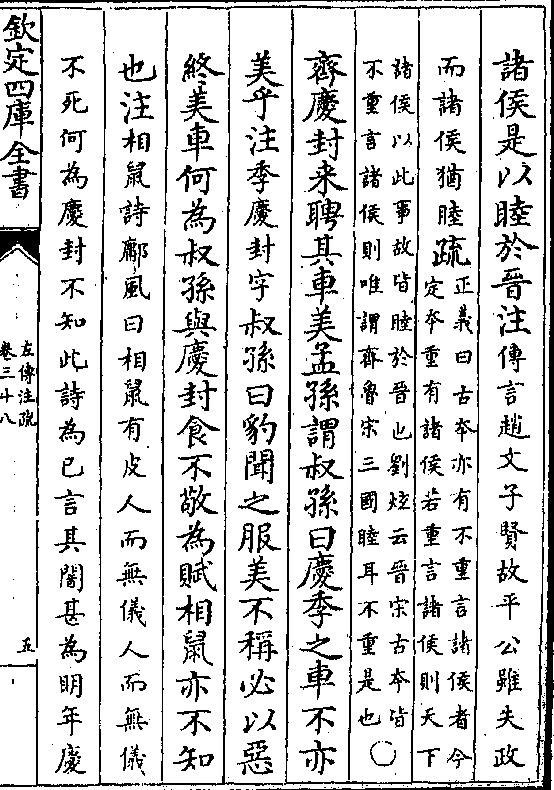 諸侯是以睦於晉注傳言趙文子賢故平公雖失政
而諸侯猶睦疏正義曰古本亦有不重言諸侯者今
定本重有諸侯若重言諸侯則天下
諸侯以此事故皆睦於晉也劉炫云晉宋古本皆
不重言諸侯則唯謂齊魯宋三國睦耳不重是也○
齊慶封来聘其車美孟孫謂叔孫曰慶季之車不亦
美乎注季慶封字叔孫曰豹聞之服美不稱必以惡
終美車何為叔孫與慶封食不敬為賦相鼠亦不知
也注相鼠詩鄘風曰相鼠有皮人而無儀人而無儀
不死何為慶封不知此詩為己言其闇甚為明年慶
欽定四庫全書
左傳注疏
卷三十八
五